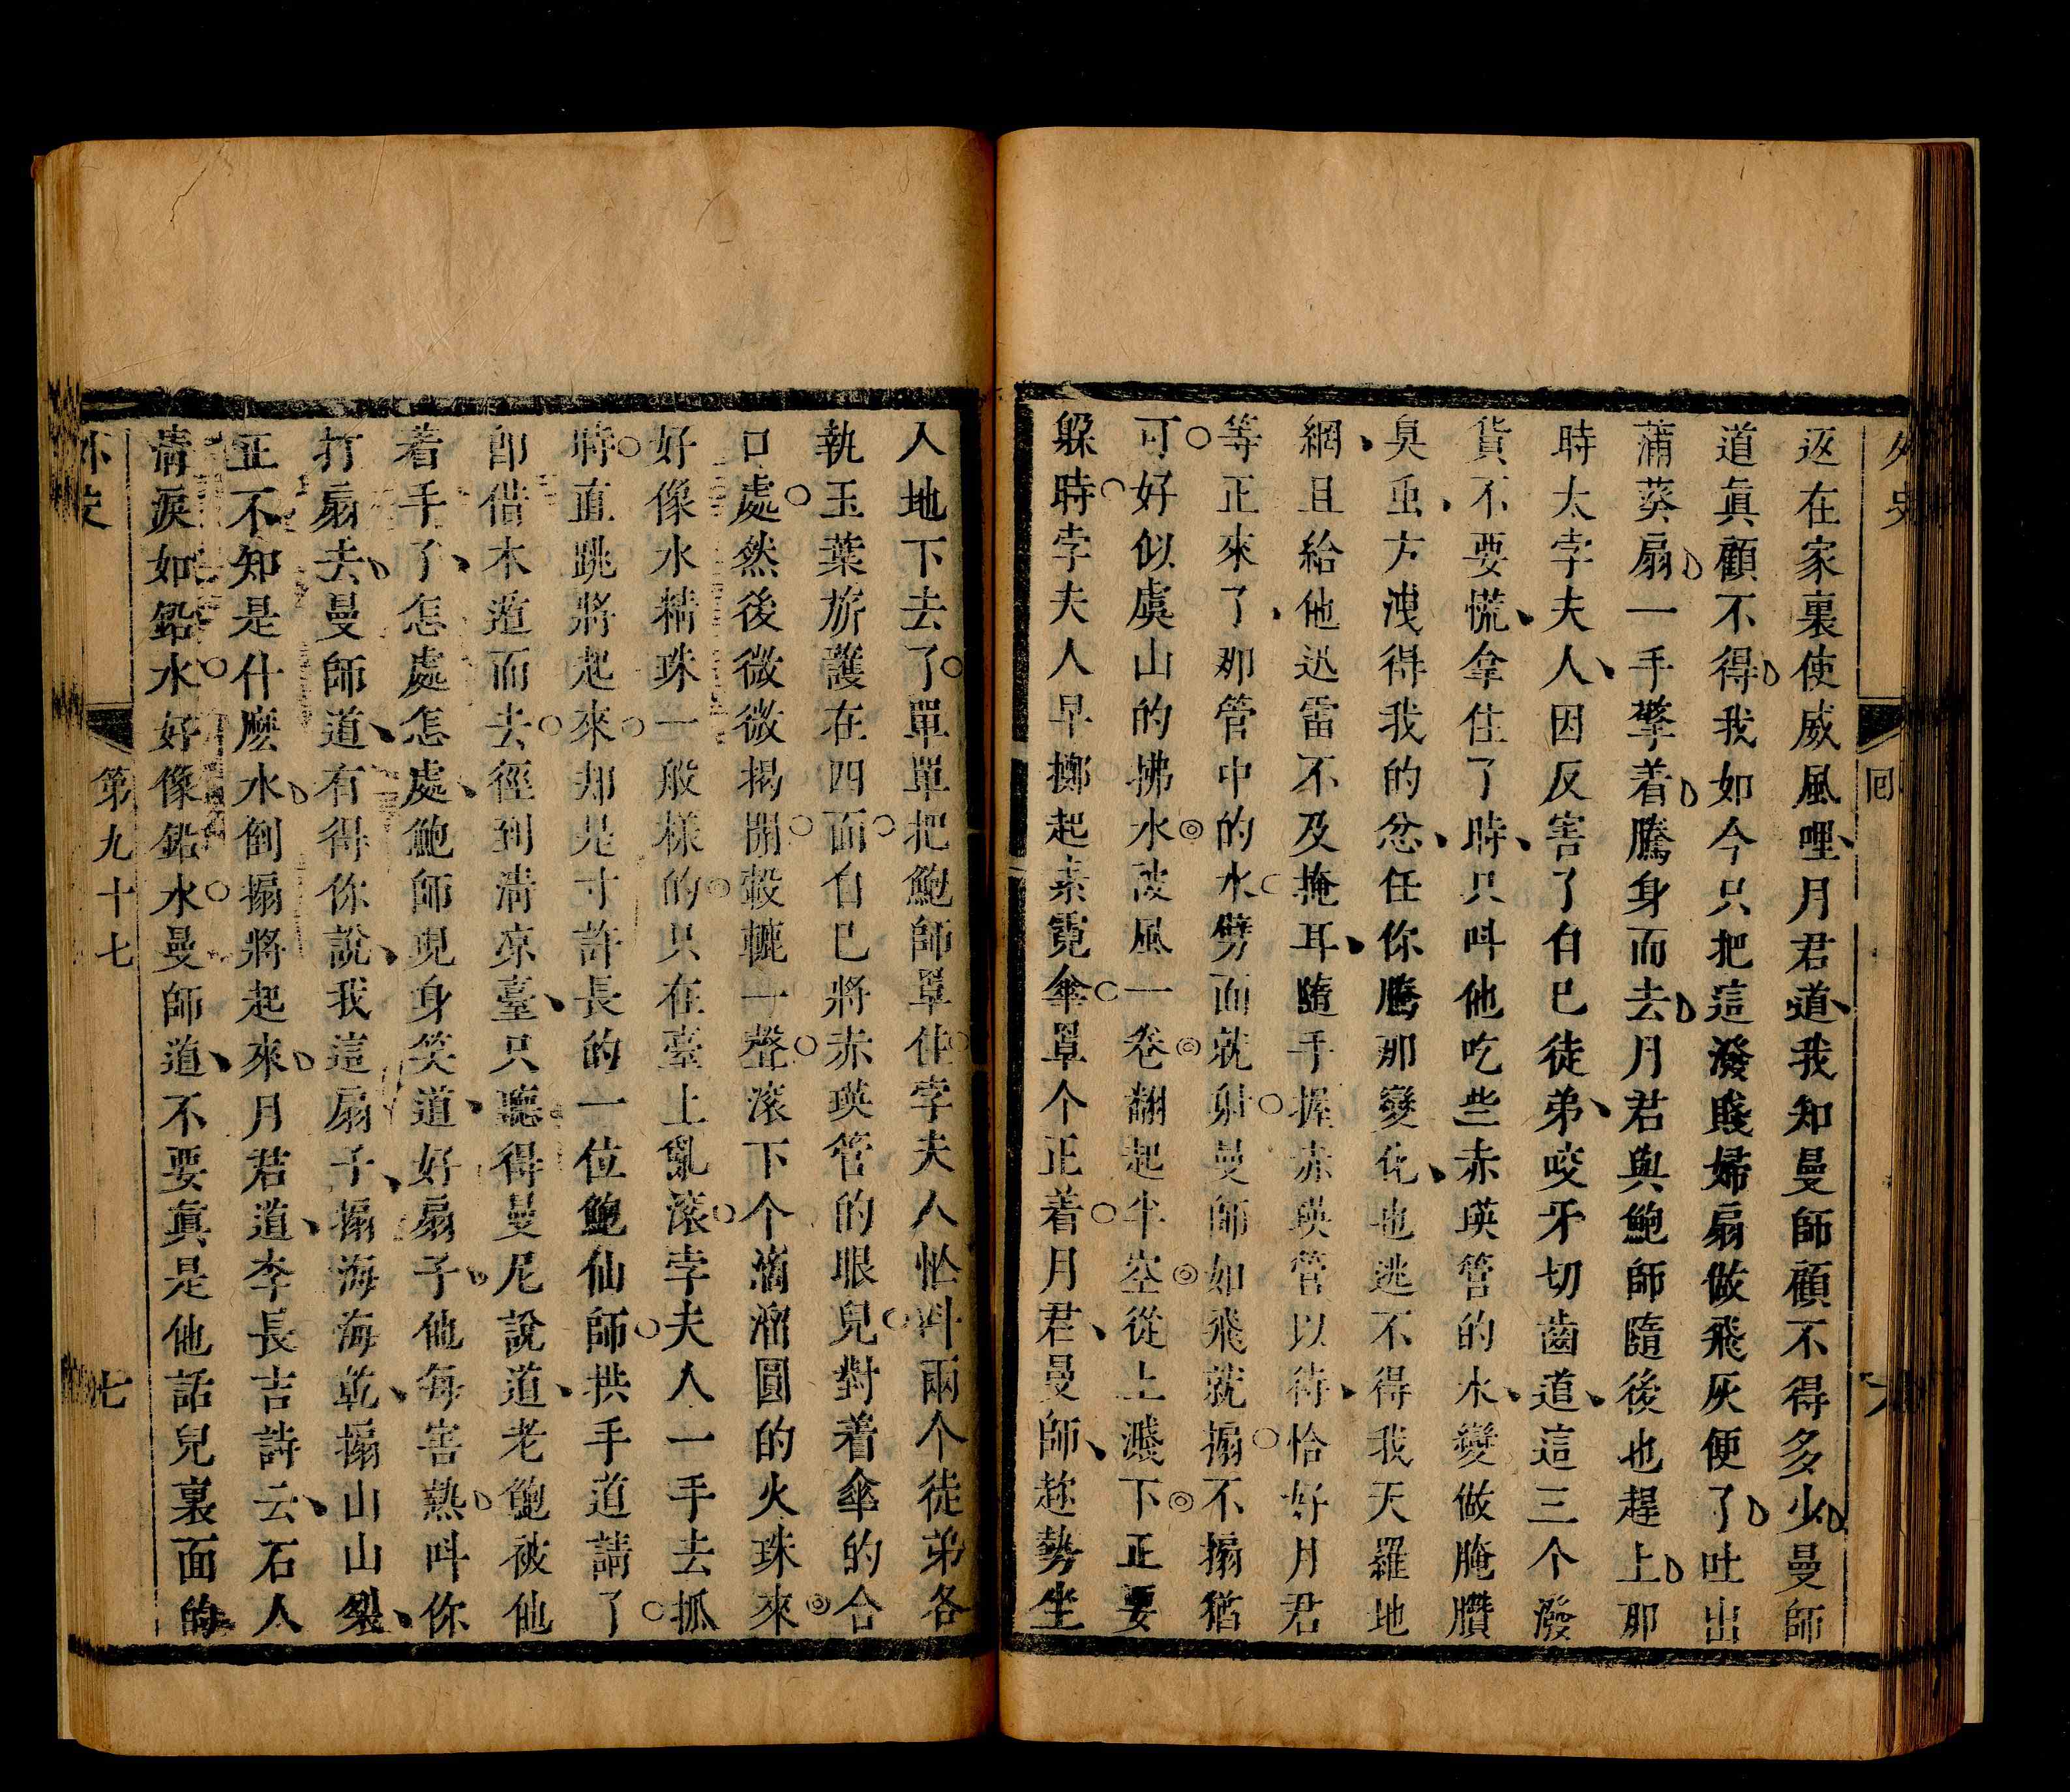 外史
回
六
返在家裏使威風哩月君道我知曼師顧不得多少曼師
道眞顧不得我如今只把這潑賤婦扇做飛灰便了吐出
蒲葵扇一手擎着騰身而去月君與鮑師隨後也趕上那
時太孛夫人因反害了自巳徒弟咬牙切齒道這三个潑
貨不要慌拿住了時只呌他吃些赤瑛管的水變做腌臢
臭虫方洩得我的忿任你騰那變化也逃不得我天羅地
網且給他迅雷不及掩耳隨手握赤瑛管以待恰好月君
等正來了那管中的水劈面就射曼師如飛就搧不搧猶
可好似虞山的拂水被風一卷翻起半空從上濺下正要
躱時孛夫人早擲起素霓傘罩个正着月君曼師趂勢坐
入地下去了單單把鮑師罩住孛夫人恠呌兩个徒弟各
執玉葉旂護在四面自巳將赤瑛管的眼兒對着傘的合
口處然後微微揭開轂轆一聲滚下个滴溜圓的火珠來
好像水精珠一般樣的只在臺上亂滚孛夫人一手去抓
時直跳將起來却是寸許長的一位鮑仙師拱手道請了
卽借木遁而去徑到淸凉臺只聽得曼尼說道老鮑被他
着手了怎處怎處鮑師現身笑道好扇子他每害熱呌你
打扇去曼師道有得你說我這扇子搧海海乾搧山山裂
正不知是什麽水倒搧將起來月君道李長吉詩云石人
淸淚如鉛水好像鉛水曼師道不要眞是他話兒裏面的
外史
第九十七
七